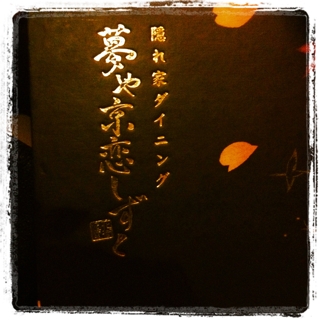 隠れ家ダイニング
夢や京恋しずく